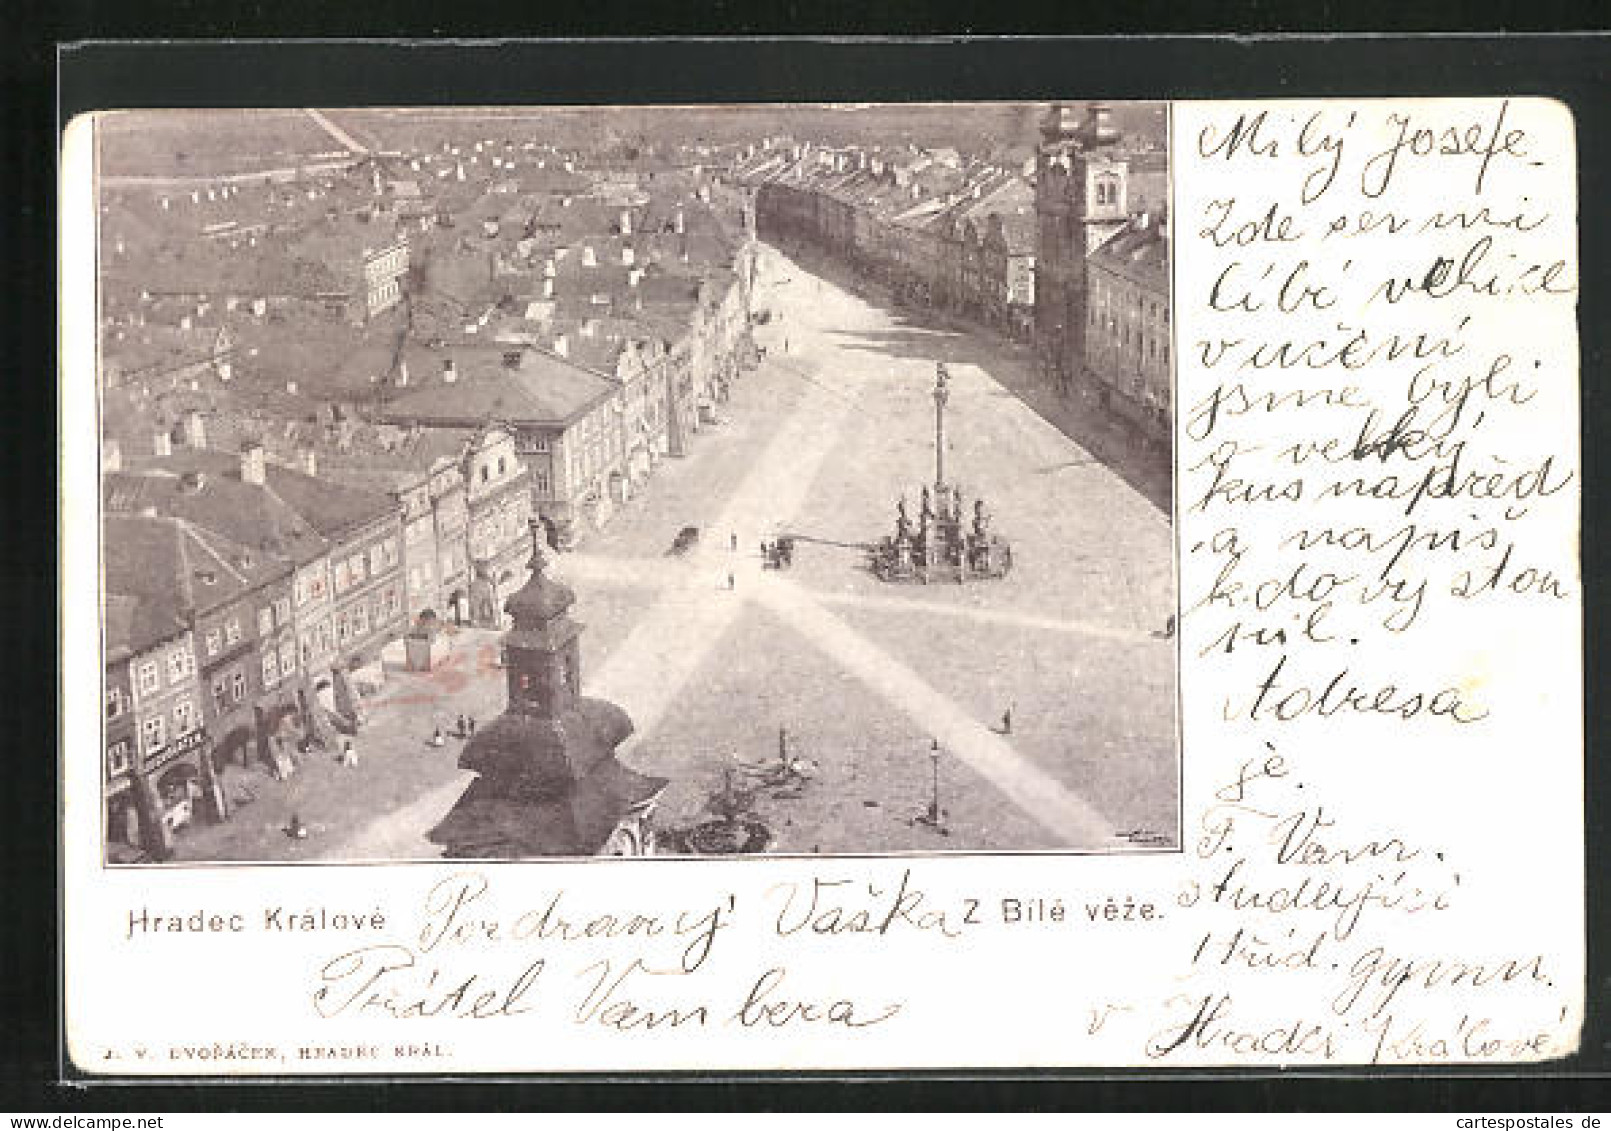 Milý Josefe.
Zde se mi
líbí velice
v učení
jsme byli
o velký
kus napřed
a napiš
kdo vystou
pil.
Adresa
je.
F. Vam.
studující
I tříd. gymn.
v Hradci Králové
Hradec Králové
Pozdravuj Vaška
Z Bílé věže.
Přátel Vambera
J. V. DVOŘÁČEK, HRADEC KRÁL.
cartespostales de
www.cartespostales-online.com